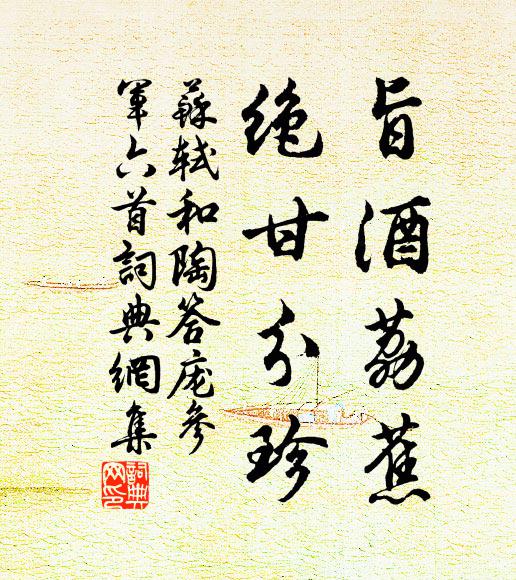 旨酒荔蕉
绝甘分珍
蘇軾和陶答庞參
軍六首詞典網集
詞典网印